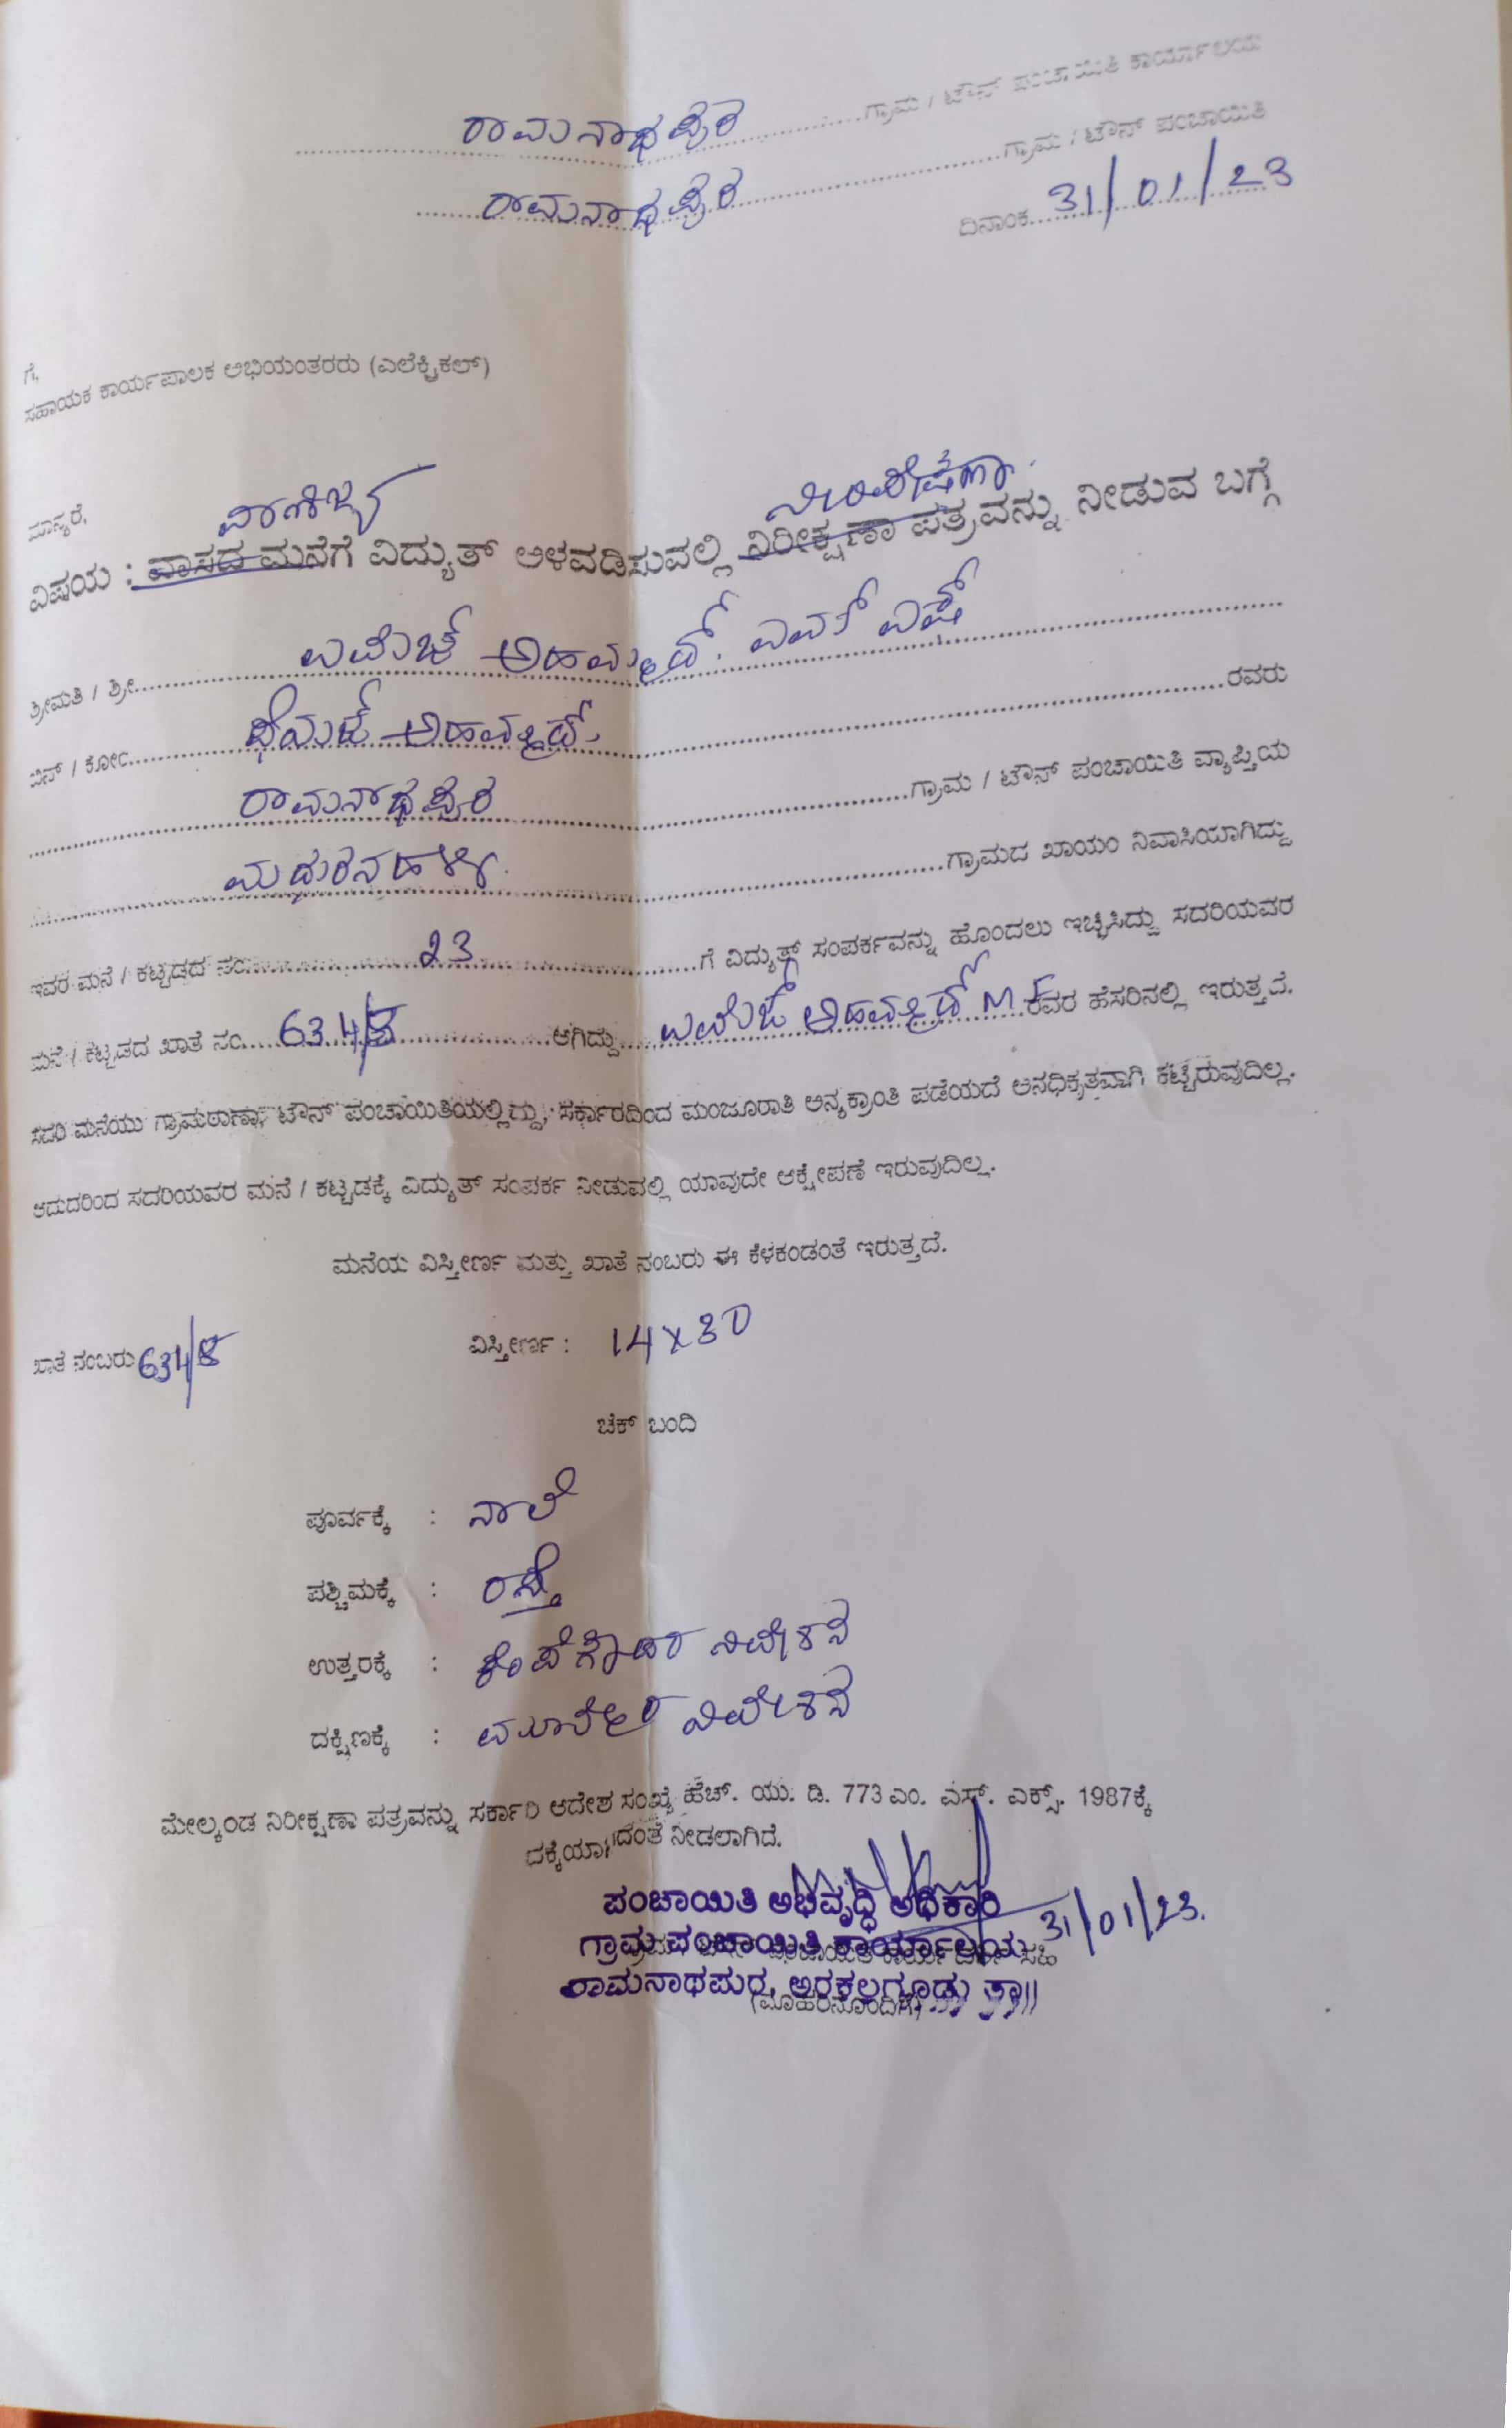 ರಾಮನಾಥಪುರ ಗ್ರಾಮ / ಟೌನ್ ಪಂಚಾಯಿತಿ ಕಾರ್ಯಾಲಯ
ರಾಮನಾಥಪುರ ಗ್ರಾಮ / ಟೌನ್ ಪಂಚಾಯಿತಿ
ದಿನಾಂಕ 31/01/23
ಗೆ,
ಸಹಾಯಕ ಕಾರ್ಯಪಾಲಕ ಅಭಿಯಂತರರು (ಎಲೆಕ್ಟ್ರಿಕಲ್)
ಮಾನ್ಯರೆ,
ವಾಣಿಜ್ಯ
ವಿಷಯ : ವಾಸದ ಮನೆಗೆ ವಿದ್ಯುತ್ ಅಳವಡಿಸುವಲ್ಲಿ ನಿರೀಕ್ಷಣಾ ಪತ್ರವನ್ನು ನೀಡುವ ಬಗ್ಗೆ
ಶ್ರೀಮತಿ / ಶ್ರೀ ಅಹಮ್ಮದ್. ಎಮ್ ಎಫ್
ಬಿನ್ / ಕೋಂ ಅಹಮ್ಮದ್ ರವರು
ರಾಮನಾಥಪುರ ಗ್ರಾಮ / ಟೌನ್ ಪಂಚಾಯಿತಿ ವ್ಯಾಪ್ತಿಯ
ಮದುರನಹಳ್ಳಿ ಗ್ರಾಮದ ಖಾಯಂ ನಿವಾಸಿಯಾಗಿದ್ದು
ಇವರ ಮನೆ / ಕಟ್ಟಡದ ನಂ. 23 ಗೆ ವಿದ್ಯುತ್ ಸಂಪರ್ಕವನ್ನು ಹೊಂದಲು ಇಚ್ಛಿಸಿದ್ದು ಸದರಿಯವರ
ಮನೆ / ಕಟ್ಟಡದ ಖಾತೆ ನಂ. 634/8 ಆಗಿದ್ದು ಅಹಮ್ಮದ್ M F ರವರ ಹೆಸರಿನಲ್ಲಿ ಇರುತ್ತದೆ.
ಸದರಿ ಮನೆಯು ಗ್ರಾಮಠಾಣಾ, ಟೌನ್ ಪಂಚಾಯಿತಿಯಲ್ಲಿದ್ದು, ಸರ್ಕಾರದಿಂದ ಮಂಜೂರಾತಿ ಅನ್ಯಕ್ರಾಂತಿ ಪಡೆಯದೆ ಅನಧಿಕೃತವಾಗಿ ಕಟ್ಟಿರುವುದಿಲ್ಲ.
ಆದುದರಿಂದ ಸದರಿಯವರ ಮನೆ / ಕಟ್ಟಡಕ್ಕೆ ವಿದ್ಯುತ್ ಸಂಪರ್ಕ ನೀಡುವಲ್ಲಿ ಯಾವುದೇ ಆಕ್ಷೇಪಣೆ ಇರುವುದಿಲ್ಲ.
ಮನೆಯ ವಿಸ್ತೀರ್ಣ ಮತ್ತು ಖಾತೆ ನಂಬರು ಈ ಕೆಳಕಂಡಂತೆ ಇರುತ್ತದೆ.
ಖಾತೆ ನಂಬರು 634/8 ವಿಸ್ತೀರ್ಣ : 14x30
ಚೆಕ್ ಬಂದಿ
ಪೂರ್ವಕ್ಕೆ : ನಾಲೆ
ಪಶ್ಚಿಮಕ್ಕೆ : ರಸ್ತೆ
ಉತ್ತರಕ್ಕೆ : ಕೆಂಪೆಗೌಡರ ನಿವೇಶನ
ದಕ್ಷಿಣಕ್ಕೆ : ನಿವೇಶನ
ಮೇಲ್ಕಂಡ ನಿರೀಕ್ಷಣಾ ಪತ್ರವನ್ನು ಸರ್ಕಾರಿ ಆದೇಶ ಸಂಖ್ಯೆ ಹೆಚ್. ಯು. ಡಿ. 773 ಎಂ. ಎಸ್. ಎಕ್ಸ್. 1987ಕ್ಕೆ
ನೀಡಲಾಗಿದೆ.
ಪಂಚಾಯಿತಿ ಅಭಿವೃದ್ಧಿ ಅಧಿಕಾರಿ
ಗ್ರಾಮ ಪಂಚಾಯಿತಿ ಕಾರ್ಯಾಲಯ 31/01/23.
ರಾಮನಾಥಪುರ, ಅರಕಲಗೂಡು ತಾ||
(ಮೊಹರಿನೊಂದಿಗೆ)